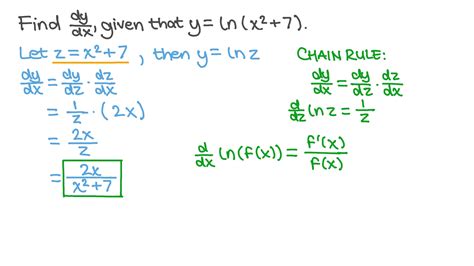 Find dy/dx, given that y = ln(x²+7).
Let z = x²+7, then y = ln z
dy/dx = dy/dz · dz/dx
= 1/z · (2x)
= 2x/z
= 2x/(x²+7)
CHAIN RULE:
dy/dx = dy/dz · dz/dx
d/dz ln z = 1/z
d/dx ln(f(x)) = f'(x)/f(x)